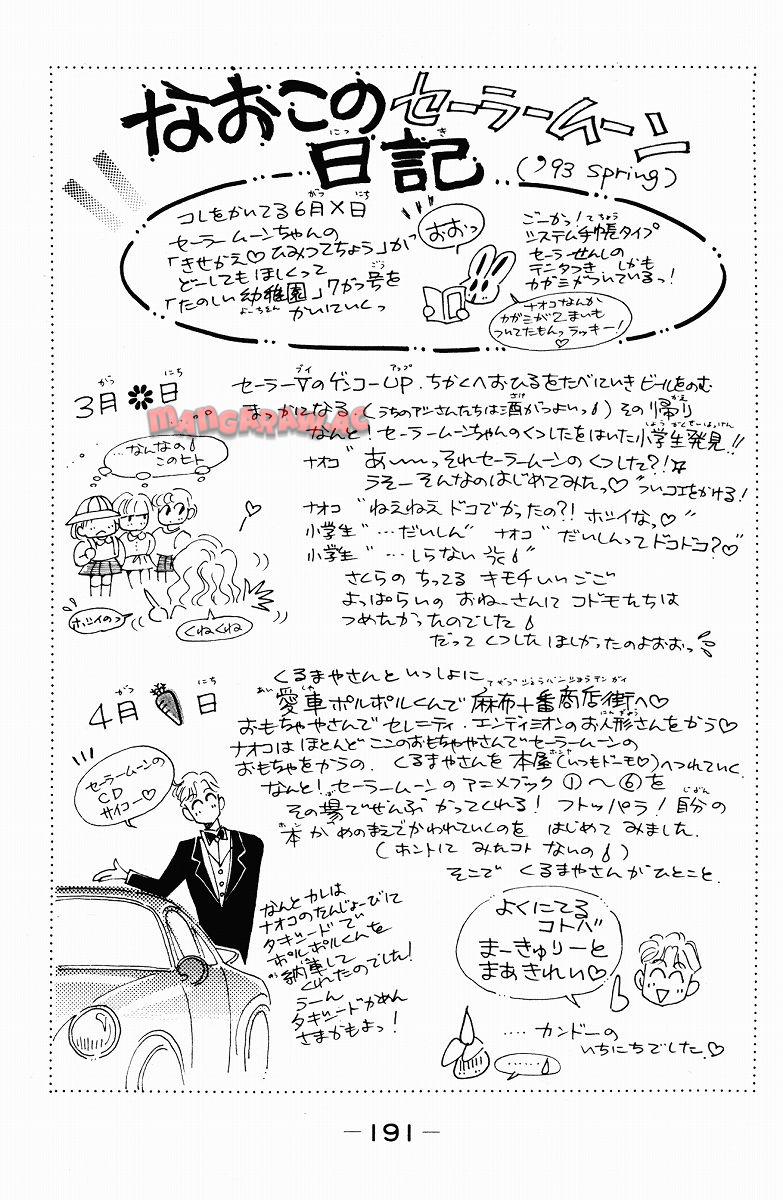 なおこのセーラームーン
日記
('93 spring)
コレをかいてる6月×日
セーラームーンちゃんの
「きせかえ♡ひみつてちょう」がっ
どーしてもほしくって
「たのしい幼稚園」7がつ号を
かいにいくっ
おおっ
ごーかっ!
システム手帳タイプ
セーラーせんしの
データつき しかも
カガミがついているっ!
ナオコなんか
カガミが2まいも
ついてたもんっラッキー!
♡
3月✽日
セーラーVのゲンコーUP.ちかくへおひるをたべにいきビールをのむ
まっかになる(うちのアシさんたちは酒がつよいっ)その帰り
なんと!セーラームーンちゃんのくつしたをはいた小学生発見!!
MANGARAW.AC
…なんなの
このヒト
ナオコ“あーーっそれセーラームーンのくつした?!
うそーそんなのはじめてみたっ♡”ついコエをかける!
ナオコ“ねえねえドコでかったの?!ホシイなっ♡”
小学生“…だいしん”ナオコ“だいしんってドコドコ?♡”
小学生“…しらない”
さくらの ちってる キモチいい ごご
よっぱらいの おねーさんに コドモたちは
つめたかったのでした
だって くつした ほしかったのよおおっ
ホシイのっ
くねくね
4月 日
くるまやさんといっしょに
愛車ポルポルくんで麻布十番商店街へ♡
おもちゃやさんでセレニティ.エンディミオンのお人形さんをかう♡
ナオコはほとんどここのおもちゃやさんでセーラームーンの
おもちゃをかうの.くるまやさんを本屋(いつもドーモ♡)へつれていく.
なんと!セーラームーンのアニメブック①〜⑥を
その場でぜんぶかってくれる!フトッパラ!自分の
本がめのまえでかわれていくのを はじめて みました.
(ホントに みたコト ないの)
そこで くるまやさんがひとこと
セーラームーンの
CD
サイコー♡
なんとカレは
ナオコのたんじょーびに
タキシードで
ポルポルくんを
納車して
くれたのでした!
うーん
タキシードかめん
さまかもよっ!
よくにてる
コトバ
まーきゅりーと
まあきれい♡
……カンドーの
いちにちでした.♡
……
—191—